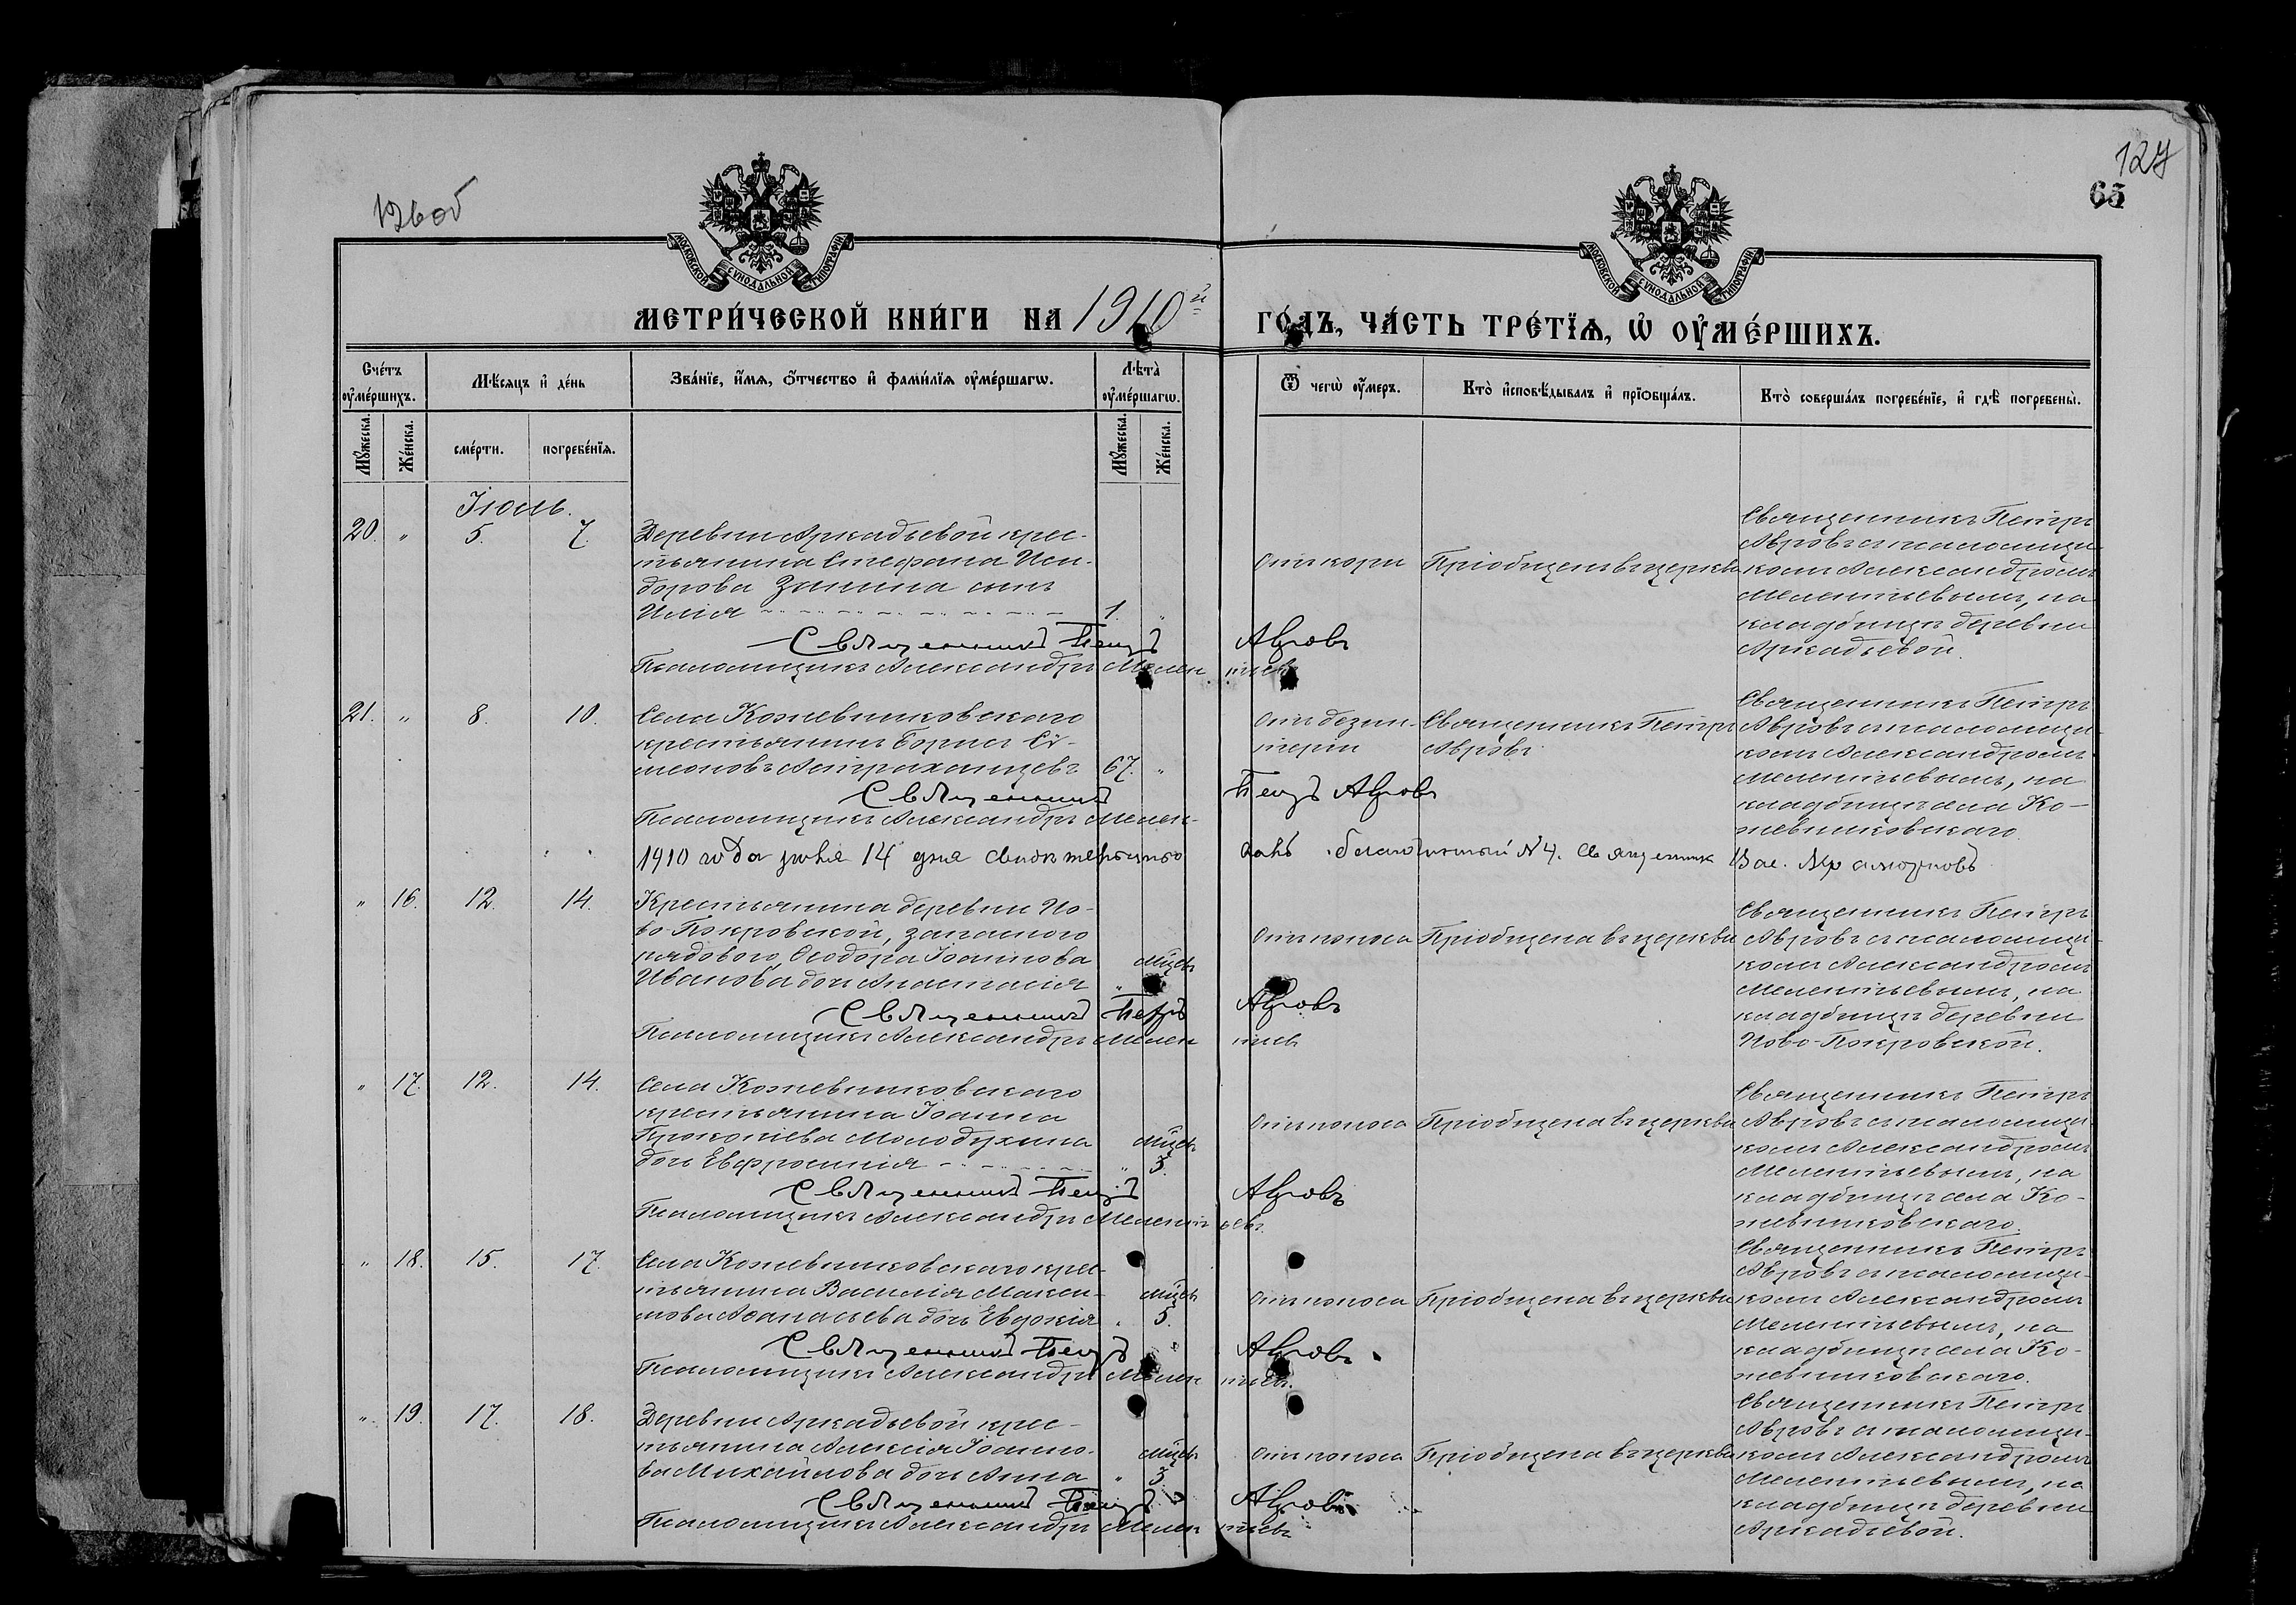 126об
127
65
МОСКОВСКОЙ СѴНОДАЛЬНОЙ ТИПОГРАФІИ
МОСКОВСКОЙ СѴНОДАЛЬНОЙ ТИПОГРАФІИ
МЕТРИ́ЧЕСКОЙ КНИ́ГИ НА 1910й ГО́ДЪ, ЧА́СТЬ ТРЕ́ТЇѦ, Ѡ҆ ОУ҆МЕ́РШИХЪ.
Сче́тъ оу҆ме́ршихъ.
Мѣ́сяцъ и҆ де́нь
Зва́нїе, и҆́мѧ, ѻ҆́тчество и҆ фами́лїѧ оу҆ме́ршагѡ.
Лѣта̀ оу҆ме́ршагѡ.
Ѿ чегѡ̀ оу҆́меръ.
Кто̀ и҆сповѣ́дывалъ и҆ прїѻбща́лъ.
Кто̀ соверша́лъ погребе́нїе, и҆ гдѣ̀ погребены̀.
Мꙋ́жеска.
Же́нска.
сме́рти.
погребе́нїѧ.
Мꙋ́жеска.
Же́нска.
Іюль.
20. " 5. 7.
Деревни Аркадьевой крес-
тьянина Стефана Иси-
дорова Зинина сынъ
Илія 1. "
Отъ кори
Пріобщенъ въ церкви
Священникъ Петръ
Авровъ съ псаломщи-
комъ Александромъ
Мелентьевымъ, на
кладбищѣ деревни
Аркадьевой.
Священникъ Петръ Авровъ
Псаломщикъ Александръ Мелентьевъ
21. " 8. 10.
Села Кожевниковскаго
крестьянинъ Борисъ Си-
меоновъ Астраханцевъ 67. "
Отъ дезин-
теріи
Священникъ Петръ
Авровъ
Священникъ Петръ
Авровъ съ псаломщи-
комъ Александромъ
Мелентьевымъ, на
кладбищѣ села Ко-
жевниковскаго.
Священникъ Петръ Авровъ
Псаломщикъ Александръ Мелен-
1910 года 14 дня благочинный N 4. Священникъ Вас.
" 16. 12. 14.
Крестьянина деревни Но-
во-Покровской, запасного
рядового, Ѳеодора Іоаннова
Иванова дочь Анастасія " мѣсяц
Отъ поноса
Пріобщена въ церкви
Священникъ Петръ
Авровъ съ псаломщи-
комъ Александромъ
Мелентьевымъ, на
кладбищѣ деревни
Ново-Покровской.
Священникъ Петръ Авровъ
Псаломщикъ Александръ Мелентьевъ
" 17. 12. 14.
Села Кожевниковскаго
крестьянина Іоанна
Прокопіева Молодухина мѣсяц
дочь Евфросинія " 3.
Отъ поноса
Пріобщена въ церкви
Священникъ Петръ
Авровъ съ псаломщи-
комъ Александромъ
Мелентьевымъ, на
кладбищѣ села Ко-
жевниковскаго.
Священникъ Петръ Авровъ
Псаломщикъ Александръ Мелентьевъ
" 18. 15. 17.
Села Кожевниковскаго крес-
тьянина Василія Макси- мѣсяц
мова Аѳанасьева дочь Евдокія " 5.
Отъ поноса
Пріобщена въ церкви
Священникъ Петръ
Авровъ съ псаломщи-
комъ Александромъ
Мелентьевымъ, на
кладбищѣ села Ко-
жевниковскаго.
Священникъ Петръ Авровъ
Псаломщикъ Александръ Мелентьевъ
" 19. 17. 18.
Деревни Аркадьевой крес-
тьянина Алексія Іоанно- мѣсяц
ва Михайлова дочь Анна " 3
Отъ поноса
Пріобщена въ церкви
Священникъ Петръ
Авровъ съ псаломщи-
комъ Александромъ
Мелентьевымъ, на
кладбищѣ деревни
Аркадьевой.
Священникъ Петръ Авровъ
Псаломщикъ Александръ Мелентьевъ